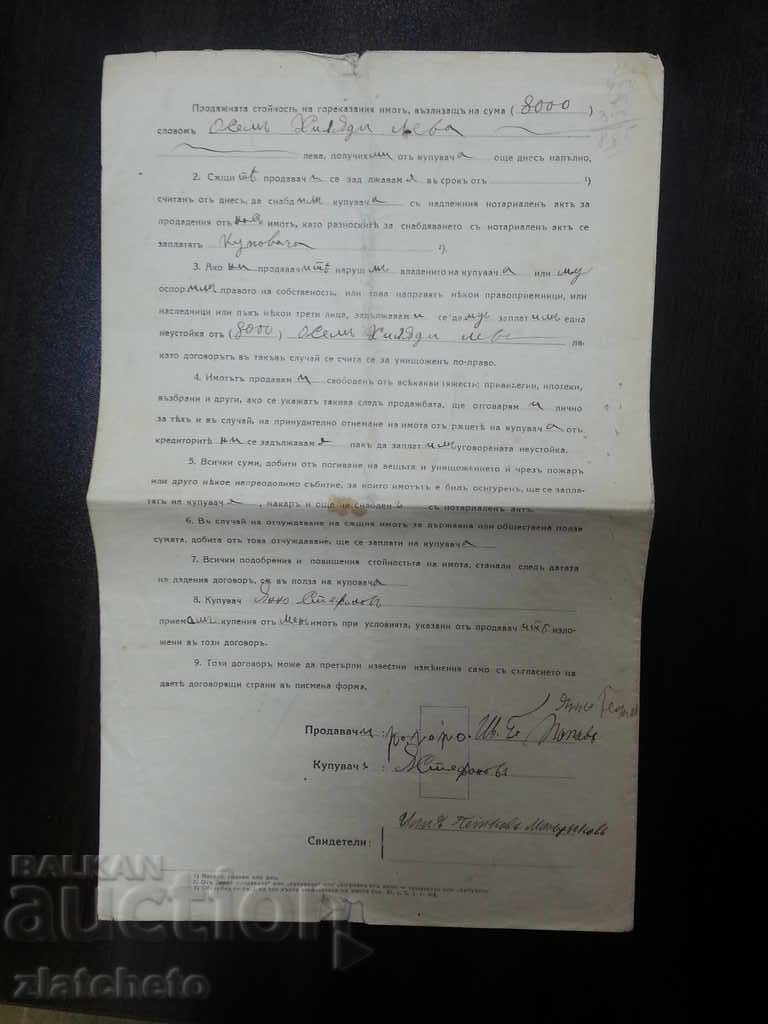 Продажната стойность на гореказания имотъ, възлизащъ на сума ( 8000 )
словомъ Осемь Хиляди лева
лева, получих ми отъ купувача още днесъ напълно,
2. Сѫщитѣ продавачи се задлжавамя въ срокъ отъ ¹)
считанъ отъ днесъ, да снабдимъ купувача съ надлежния нотариаленъ актъ за
продадения отъ имотъ, като разноскитѣ за снабдяването съ нотариаленъ актъ се
заплатятъ Куповача ²).
3. Ако ни продавачитѣ наруши владението на купувача или му
оспор правото на собственость, или това направятъ нѣкои правоприемници, или
наследници или пъкъ нѣкои трети лица, задължавами се да му заплатимъ една
неустойка отъ (8000) Осемь Хиляди лева ла-
като договорътъ въ такъвъ случай се счита се за унищоженъ по-право.
4. Имотътъ продавами свободенъ отъ всѣкакви тяжести: привилегии, ипотеки,
възбрани и други, ако се укажатъ такива следъ продажбата, ще отговарями лично
за тѣхъ и въ случай, на принудително отнемане на имота отъ рѫцетѣ на купувача отъ
кредиторитѣ ни се задължавамя пакъ да заплатимъ уговорената неустойка.
5. Всички суми, добити отъ погиване на вещьта и унищожението ѝ чрезъ пожаръ
или друго нѣкое непреодолимо събитие, за които имотътъ е билъ осигуренъ, ще се запла-
тятъ на купувача, макаръ и още не снабденъ съ нотариаленъ актъ.
6. Въ случай на отчуждаване на сѫщия имотъ за държавна или обществена полза
сумята, добита отъ това отчуждаване, ще се заплати на купувача
7. Всички подобрения и повишения стойностьта на имота, станали следъ датата
на дадения договор, сѫ въ полза на куповача
8. Купувач Янко Стефановъ
приемамъ купения отъ менъ имотъ при условията, указани отъ продавачитѣ изло-
жени въ този договоръ.
9. Този договоръ може да претърпи известни изменѣния само съ съгласието на
дветѣ договорящи страни въ писмена форма.
Продавачи: Ив. Поповъ
Купувачъ: ЯСтефановъ
Свидетели: Петковъ
BALKAN
auction
zlatcheto